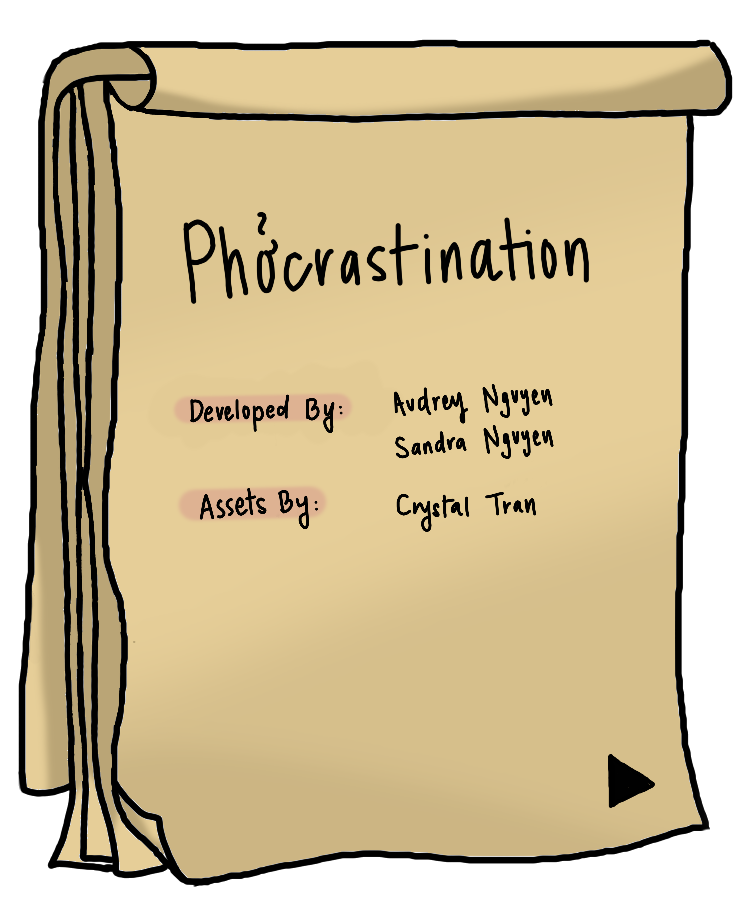 Phởcrastination
Developed By: Audrey Nguyen
Sandra Nguyen
Assets By: Crystal Tran